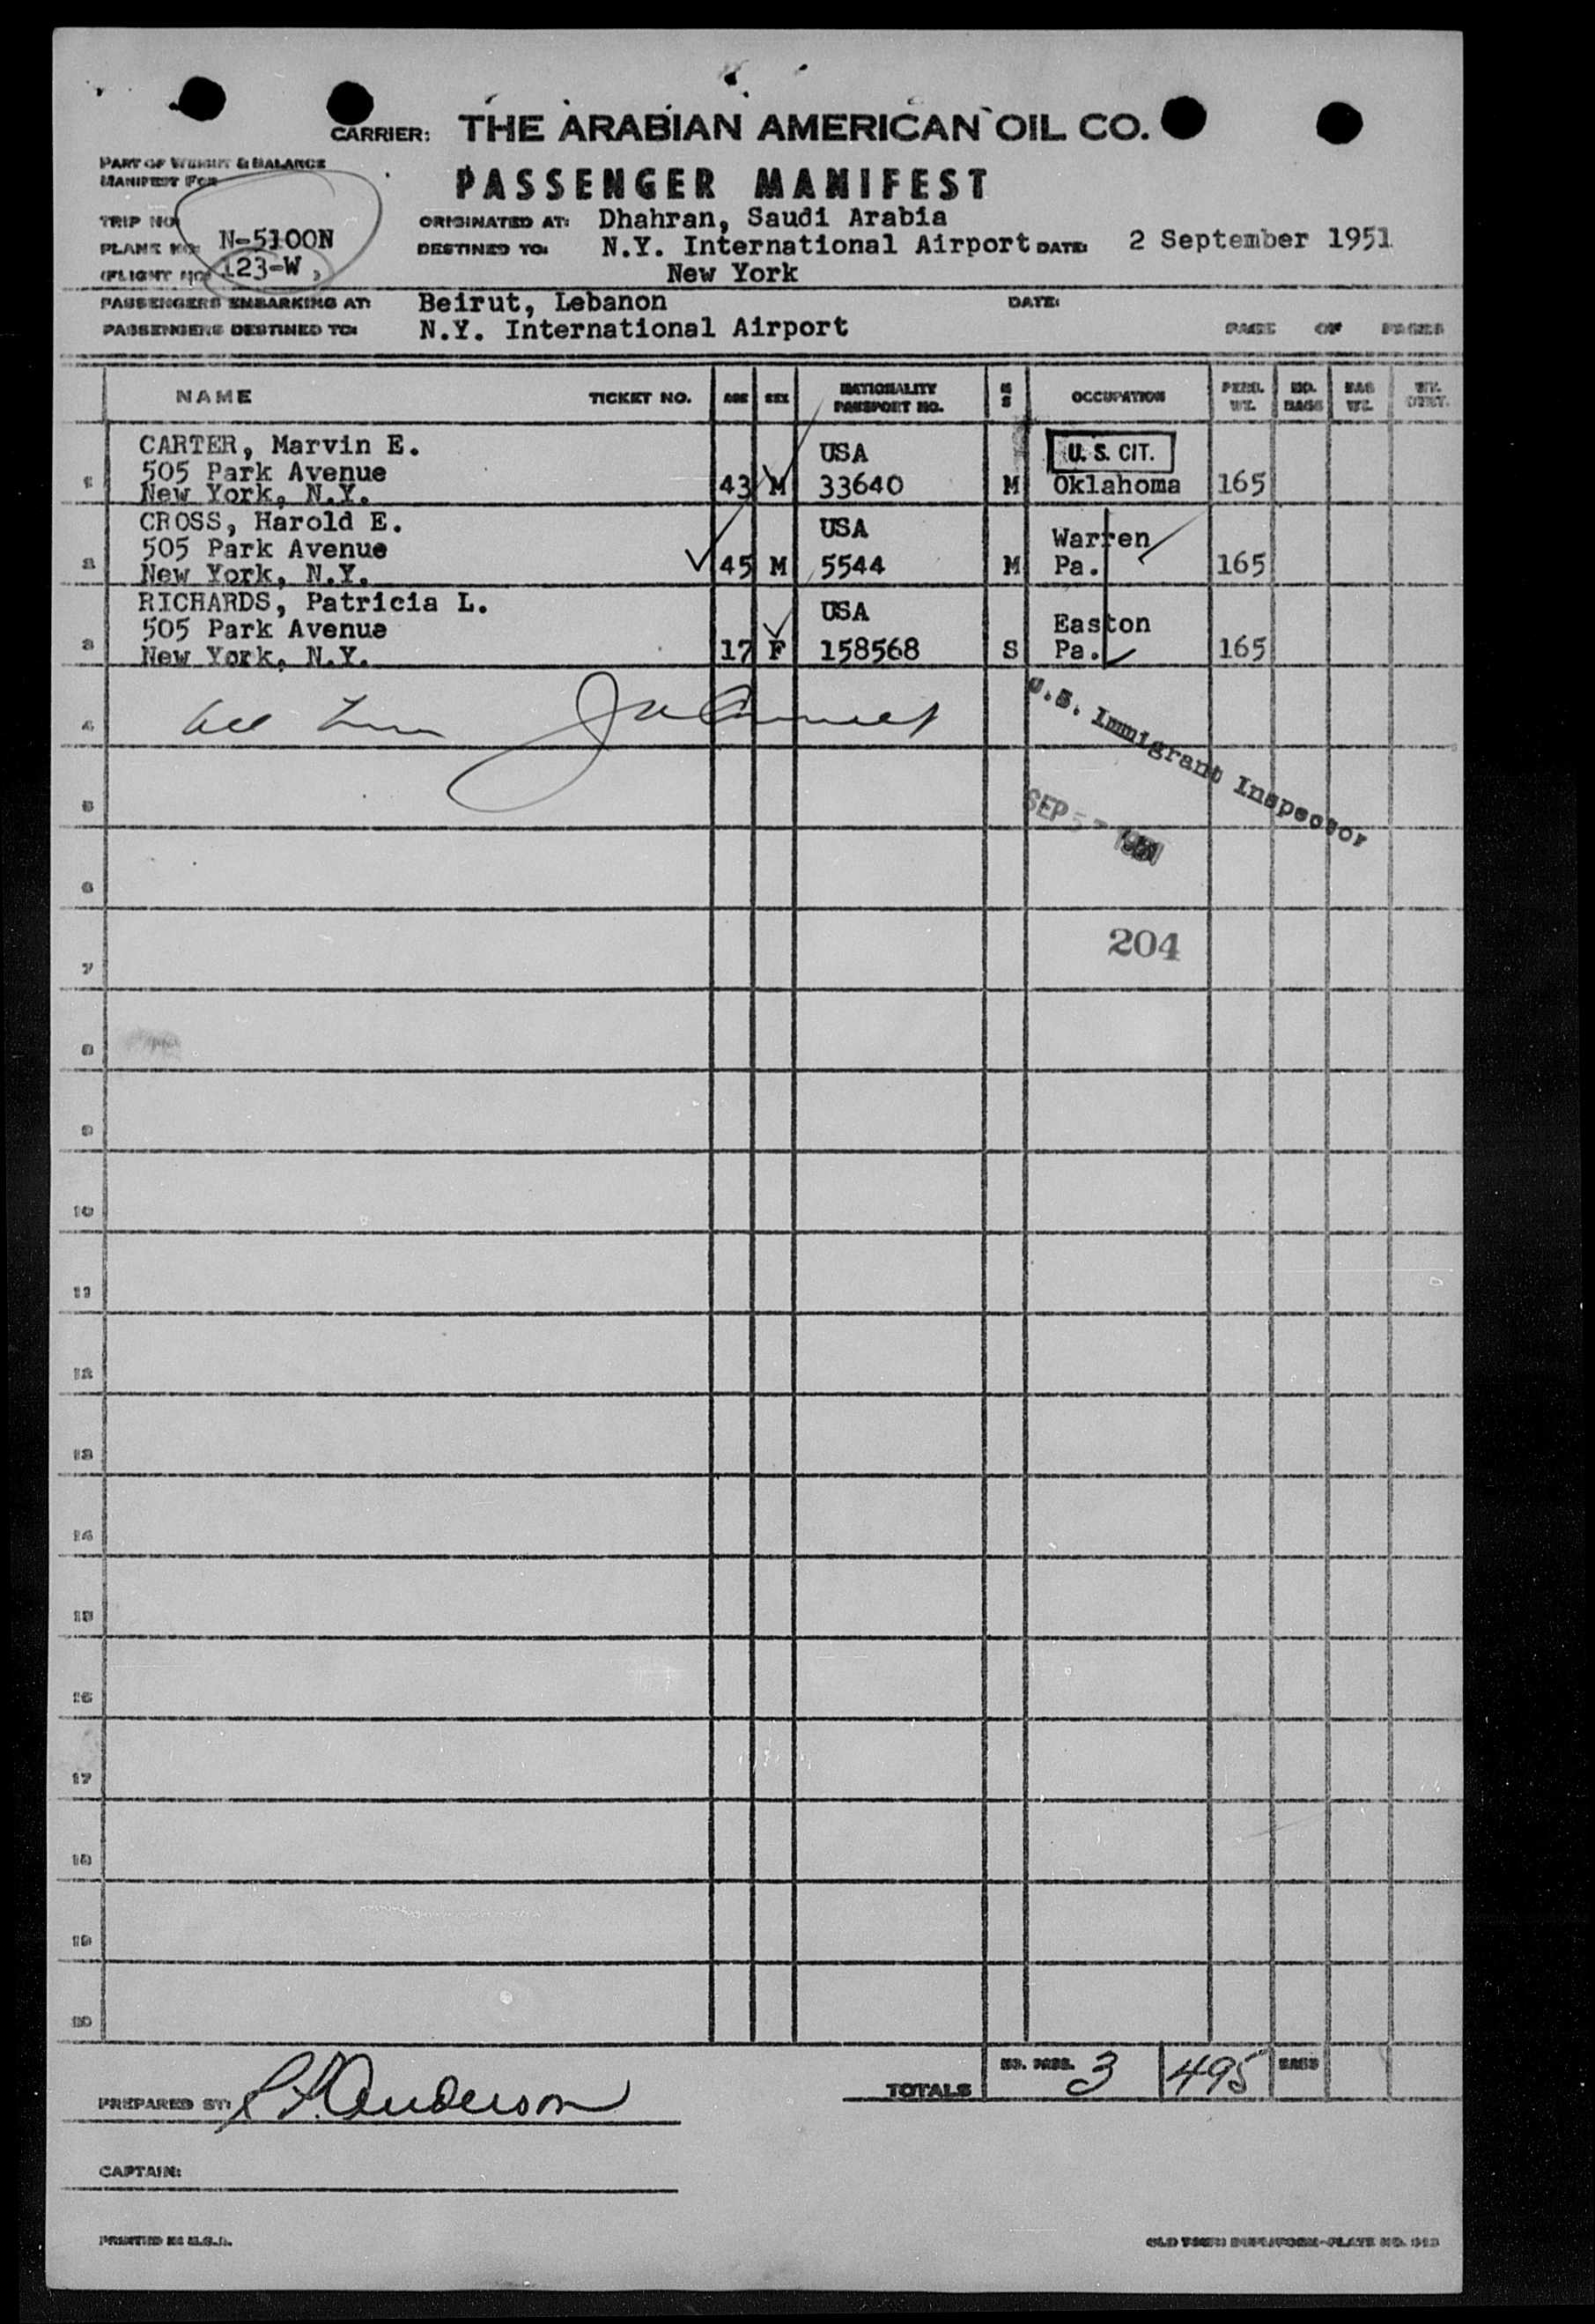 CARRIER: THE ARABIAN AMERICAN OIL CO.
PART OF WEIGHT & BALANCE
MANIFEST FOR
PASSENGER MANIFEST
TRIP NO:
ORIGINATED AT: Dhahran, Saudi Arabia
PLANE NO: N-5100N
DESTINED TO: N.Y. International Airport DATE: 2 September 1951
(FLIGHT NO: 123-W )
New York
PASSENGERS EMBARKING AT: Beirut, Lebanon DATE:
PASSENGERS DESTINED TO: N.Y. International Airport PAGE OF PAGES
NAME TICKET NO. AGE SEX NATIONALITY PASSPORT NO. M S OCCUPATION PERS. WT. NO. BAGS BAG WT.
CARTER, Marvin E. USA U.S. CIT.
505 Park Avenue
1 New York, N.Y. 43 M 33640 M Oklahoma 165
CROSS, Harold E. USA
505 Park Avenue Warren
2 New York, N.Y. 45 M 5544 M Pa. 165
RICHARDS, Patricia L. USA
505 Park Avenue Easton
3 New York, N.Y. 17 F 158568 S Pa. 165
4
U.S. Immigrant Inspector
5
SEP 5- 1951
6
204
7
8
9
10
11
12
13
14
15
16
17
18
19
20
TOTALS NO. PASS. 3 495 BAGS
PREPARED BY: Anderson
CAPTAIN:
PRINTED IN U.S.A.